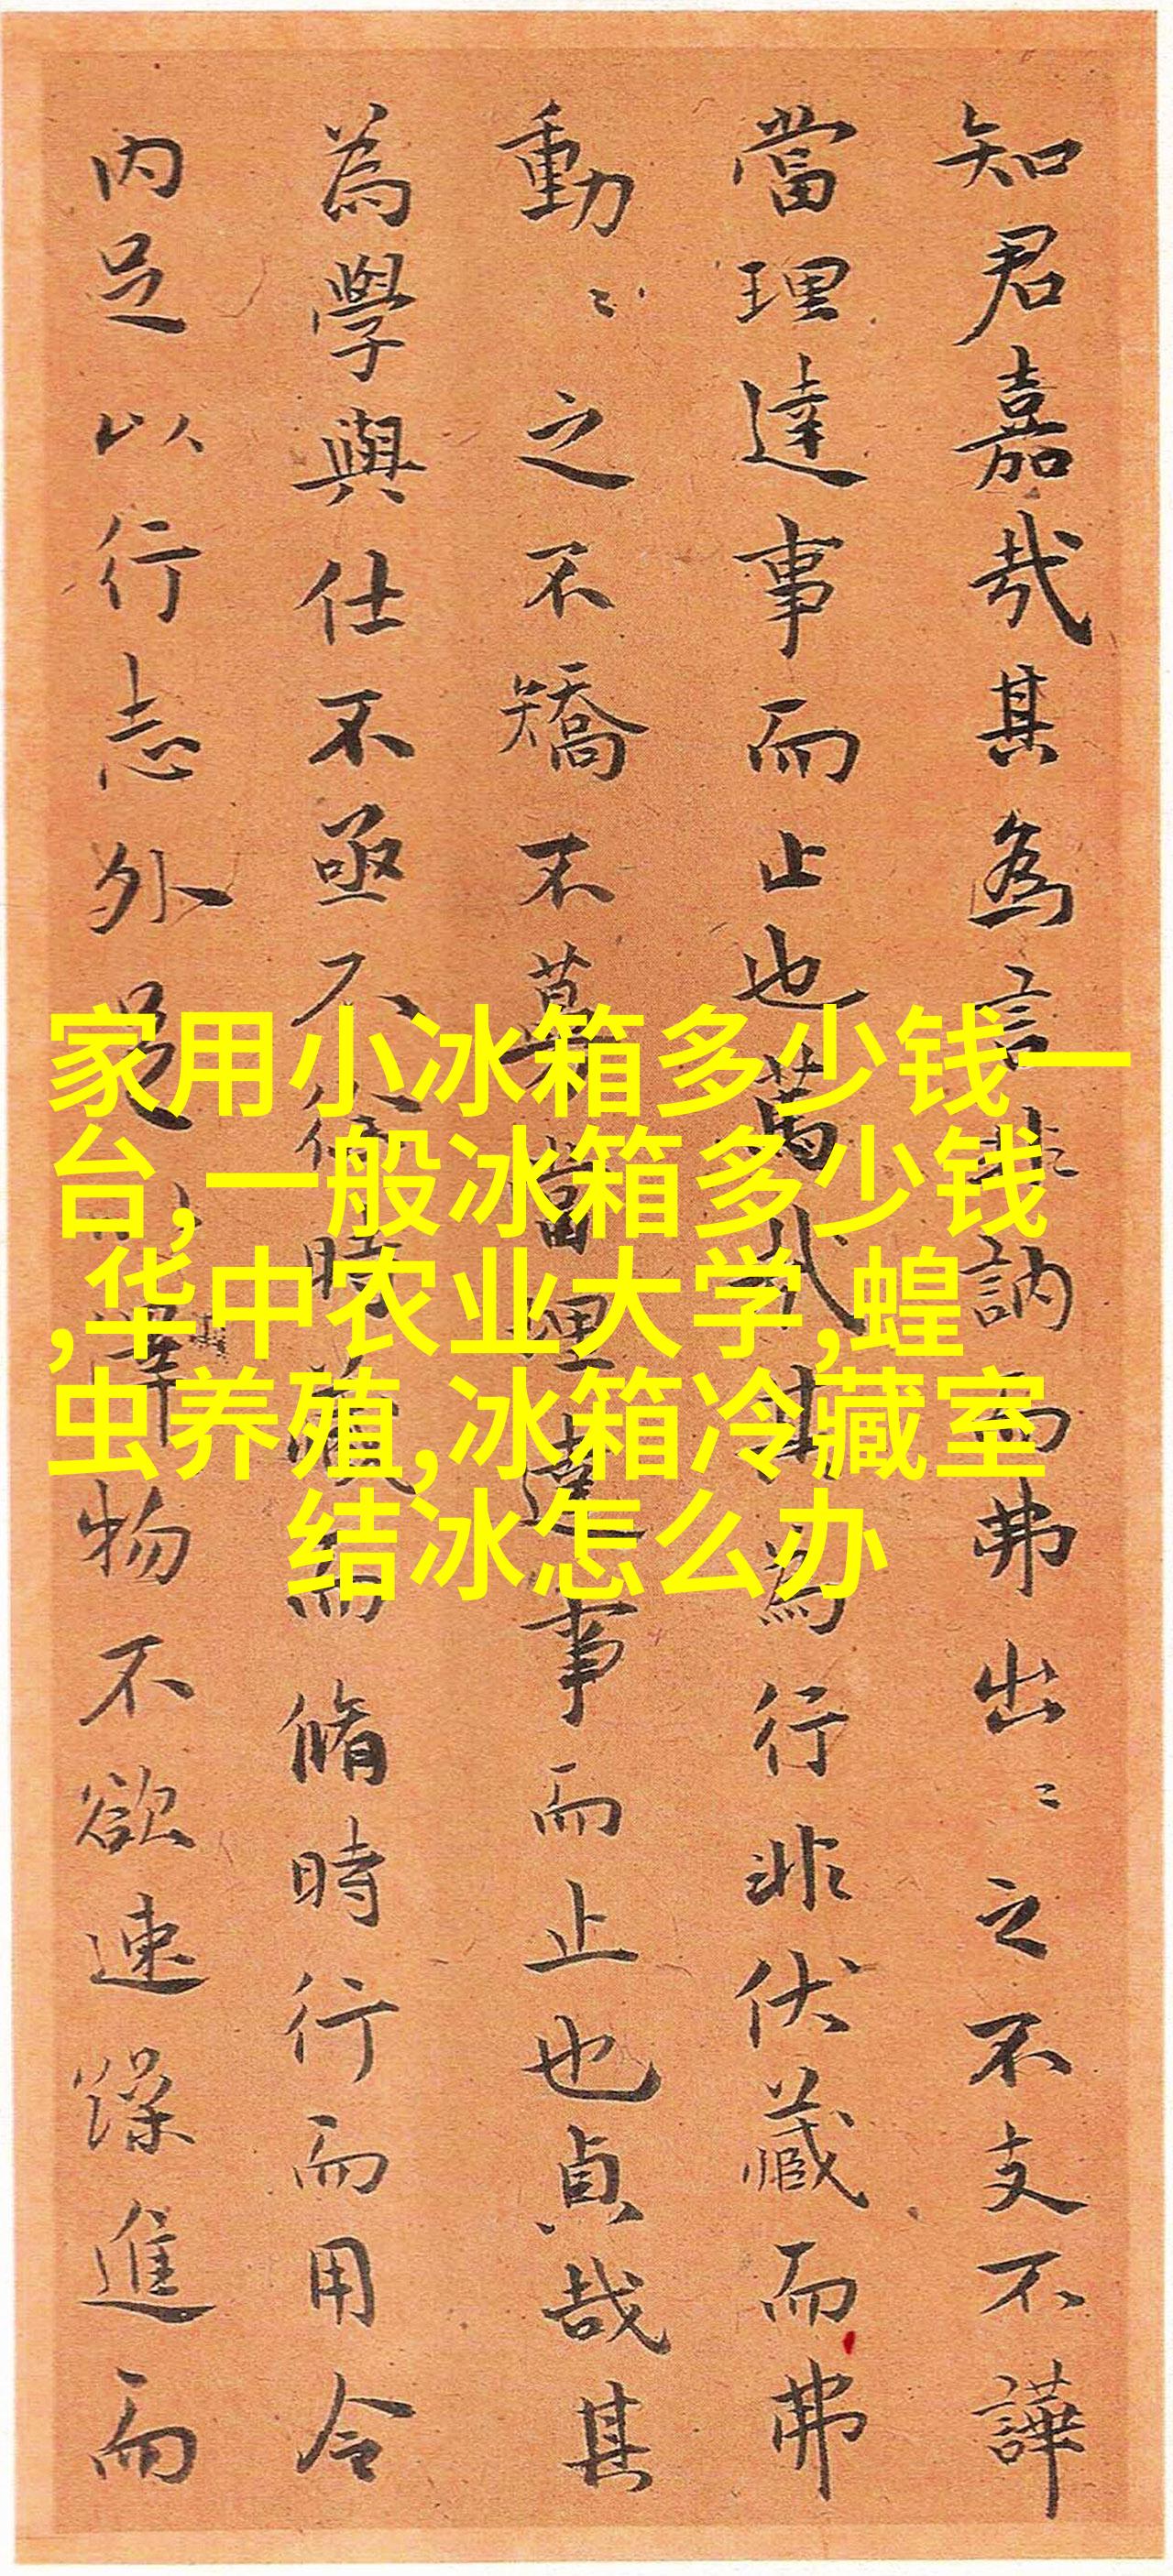 知君嘉哉其為言非訥而弗出〻之不支不譁
當理達事而止也哉其為行非伏藏而弗
動〻之不矯不當理達事而止也貞哉其
為學與仕不亟不時藏而脩時行而用令
内足以行志外足以澤物不欲速躁進而
家用小冰箱多少钱一
台,一般冰箱多少钱
,华中农业大学,蝗
虫养殖,冰箱冷藏室
结冰怎么办